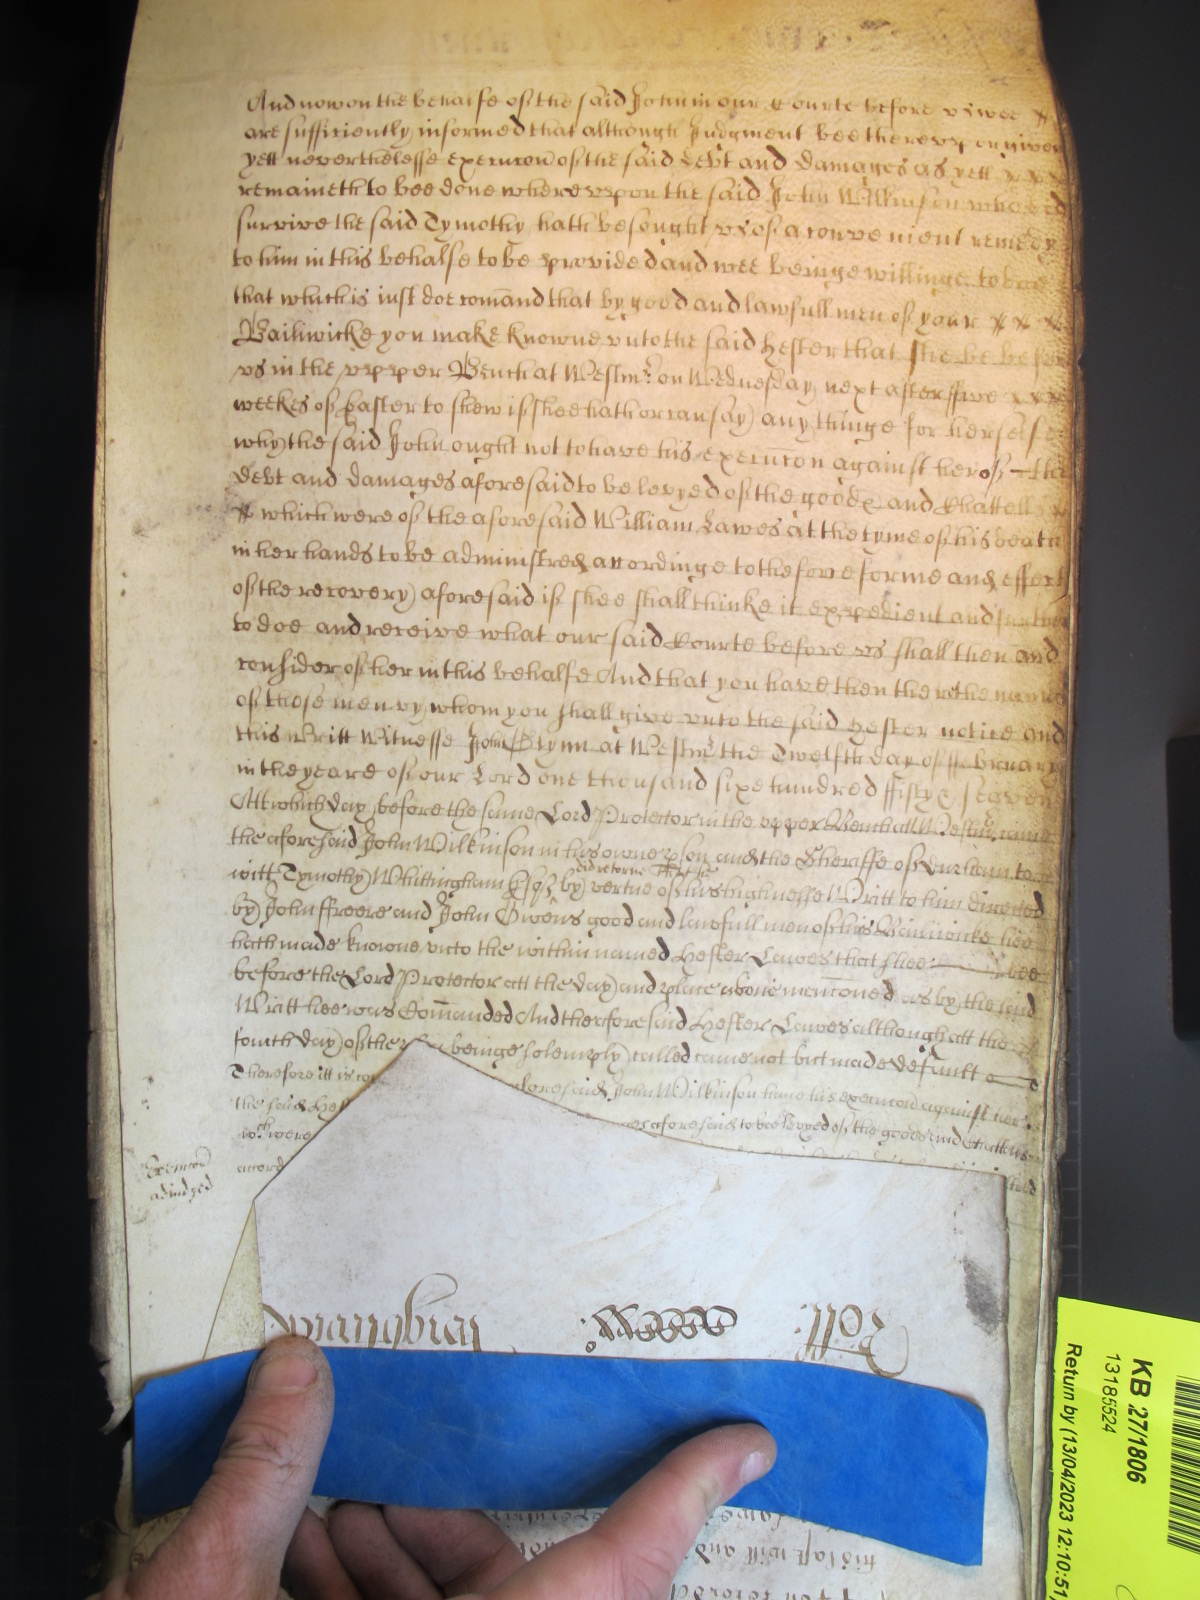 And now on the behalfe of the said John in our Courte before us wee
are sufficiently informed that although Judgment bee thereup on given
yett neverthelesse execucon of the said Debt and damages as yett
remaineth to bee done whereupon the said John Wilkinson who did
survive the said Tymothy hath besought us of a convenient remedy
to him in this behalfe to be provided and wee beinge willinge to doe
that which is just doe comand that by good and lawfull men of your
Bailiwicke you make knowne unto the said Hester that shee be before
us in the upper Bench at Westmr. on Wednesday next after ffive
weekes of Easter to shew if shee hath or can say any thinge for herselfe
why the said John ought not to have his execucon against her of the
debt and damages aforesaid to be levyed of the goods and Chattells
which were of the aforesaid William Lawes at the tyme of his death
in her hands to be administred accordinge to the force forme and effect
of the recovery aforesaid if shee shall thinke it expedient and further
to doe and receive what our said Courte before us shall then and
consider of her in this behalfe And that you have then there the names
of those men by whom you shall give unto the said Hester notice and
this writt Witnesse John Glynn at Westmr. the Twelfth day of ffebruary
in the yeare of our Lord one thousand sixe hundred ffifty & seaven
Att which day before the same Lord Protector in the upper Bench att Westmr. came
the aforesaid John Wilkinson in his owne pson and the Sheriffe of Durham to
did retorne That hee
witt Tymothy Whittingham Esqr. by vertue of his highnesse Writt to him directed
by John ffreere and John Owens good and lawfull men of his Bailiwicke hee
hath made knowne unto the within named Hester Lawes that shee bee
before the Lord Protector att the day and place above menconed as by the said
Writt hee was Comanded And the aforesaid Hester Lawes although att the
fourth day of the beinge solemply called came not but made default
Therefore itt is aforesaid John Wilkinson have his execucon against her
the said aforesaid to bee levyed of the goods and Chattells
wch. were
accord
Execucon
adiudged
Roll:
KB 27/1806
13185524
Return by (13/04/2023 12:10:51
his last will and